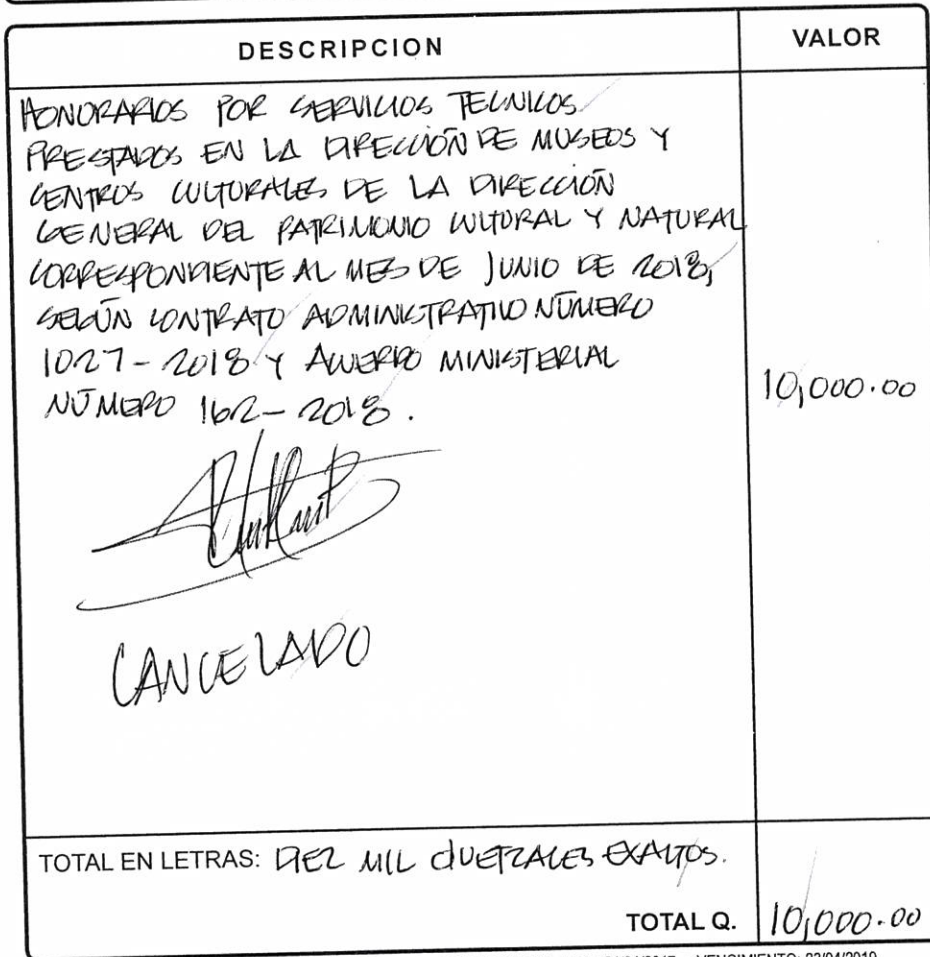 DESCRIPCION VALOR
HONORARIOS POR SERVICIOS TECNICOS
PRESTADOS EN LA DIRECCIÓN DE MUSEOS Y
CENTROS CULTURALES DE LA DIRECCIÓN
GENERAL DEL PATRIMONIO CULTURAL Y NATURAL
CORRESPONDIENTE AL MES DE JUNIO DE 2018,
SEGÚN CONTRATO ADMINISTRATIVO NÚMERO
1027-2018 Y ACUERDO MINISTERIAL
NÚMERO 162-2018. 10,000.00
CANCELADO
TOTAL EN LETRAS: DIEZ MIL QUETZALES EXACTOS.
TOTAL Q. 10,000.00
VENCIMIENTO: 23/04/2019